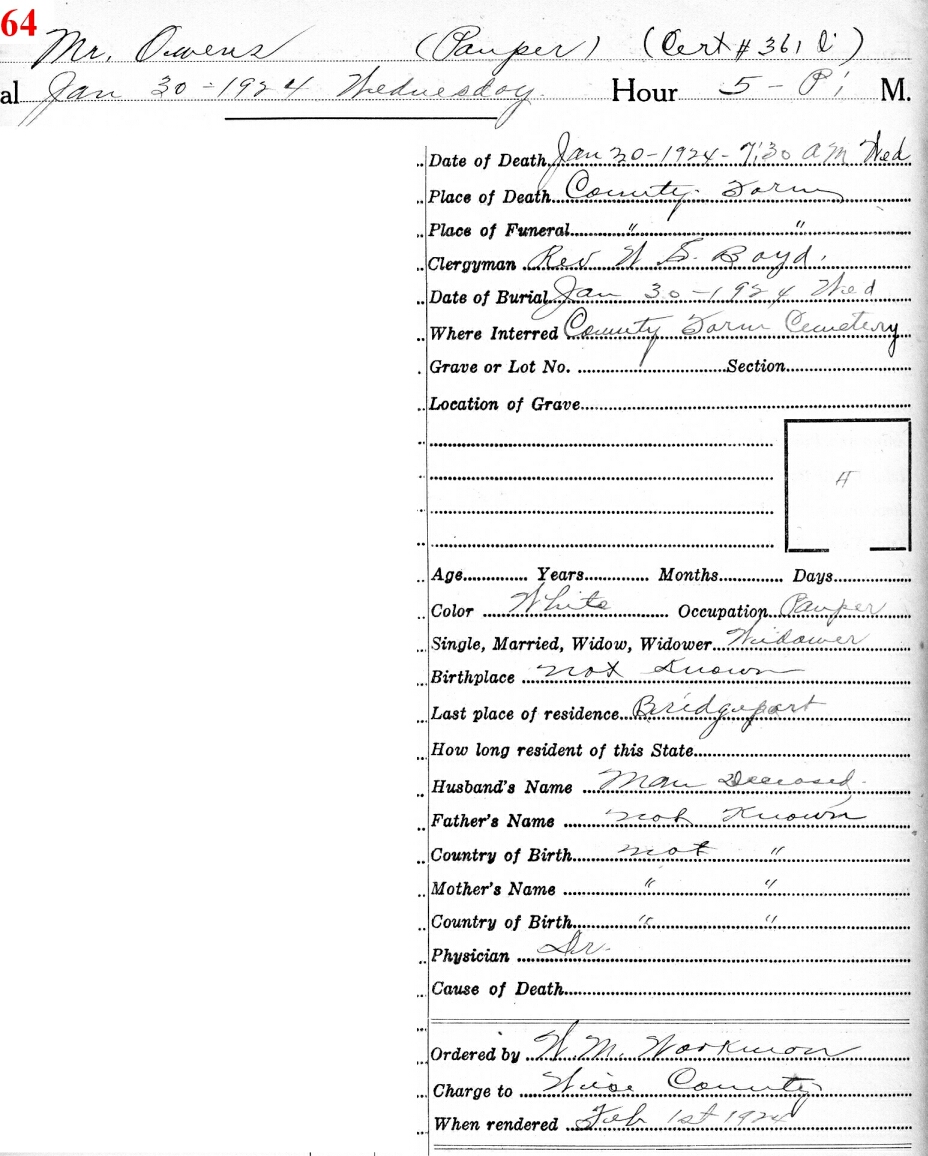 64
Mr. Owens (Pauper) (Cert # 361 )
al Jan 30-1924 Wednesday. Hour 5 - P. M.
Date of Death Jan 30-1924- 7:30 AM Wed
Place of Death County Farm
Place of Funeral " "
Clergyman Rev W S. Boyd.
Date of Burial Jan 30-1924 Wed
Where Interred County Farm Cemetery
Grave or Lot No. Section
Location of Grave
Age Years Months Days
Color White Occupation Pauper
Single, Married, Widow, Widower Widower
Birthplace not Known
Last place of residence Bridgeport
How long resident of this State
Husband's Name Man Deceased
Father's Name not Known
Country of Birth not "
Mother's Name " "
Country of Birth " "
Physician Dr.
Cause of Death
Ordered by W. M. Workman
Charge to Wise County
When rendered Feb 1st 1924